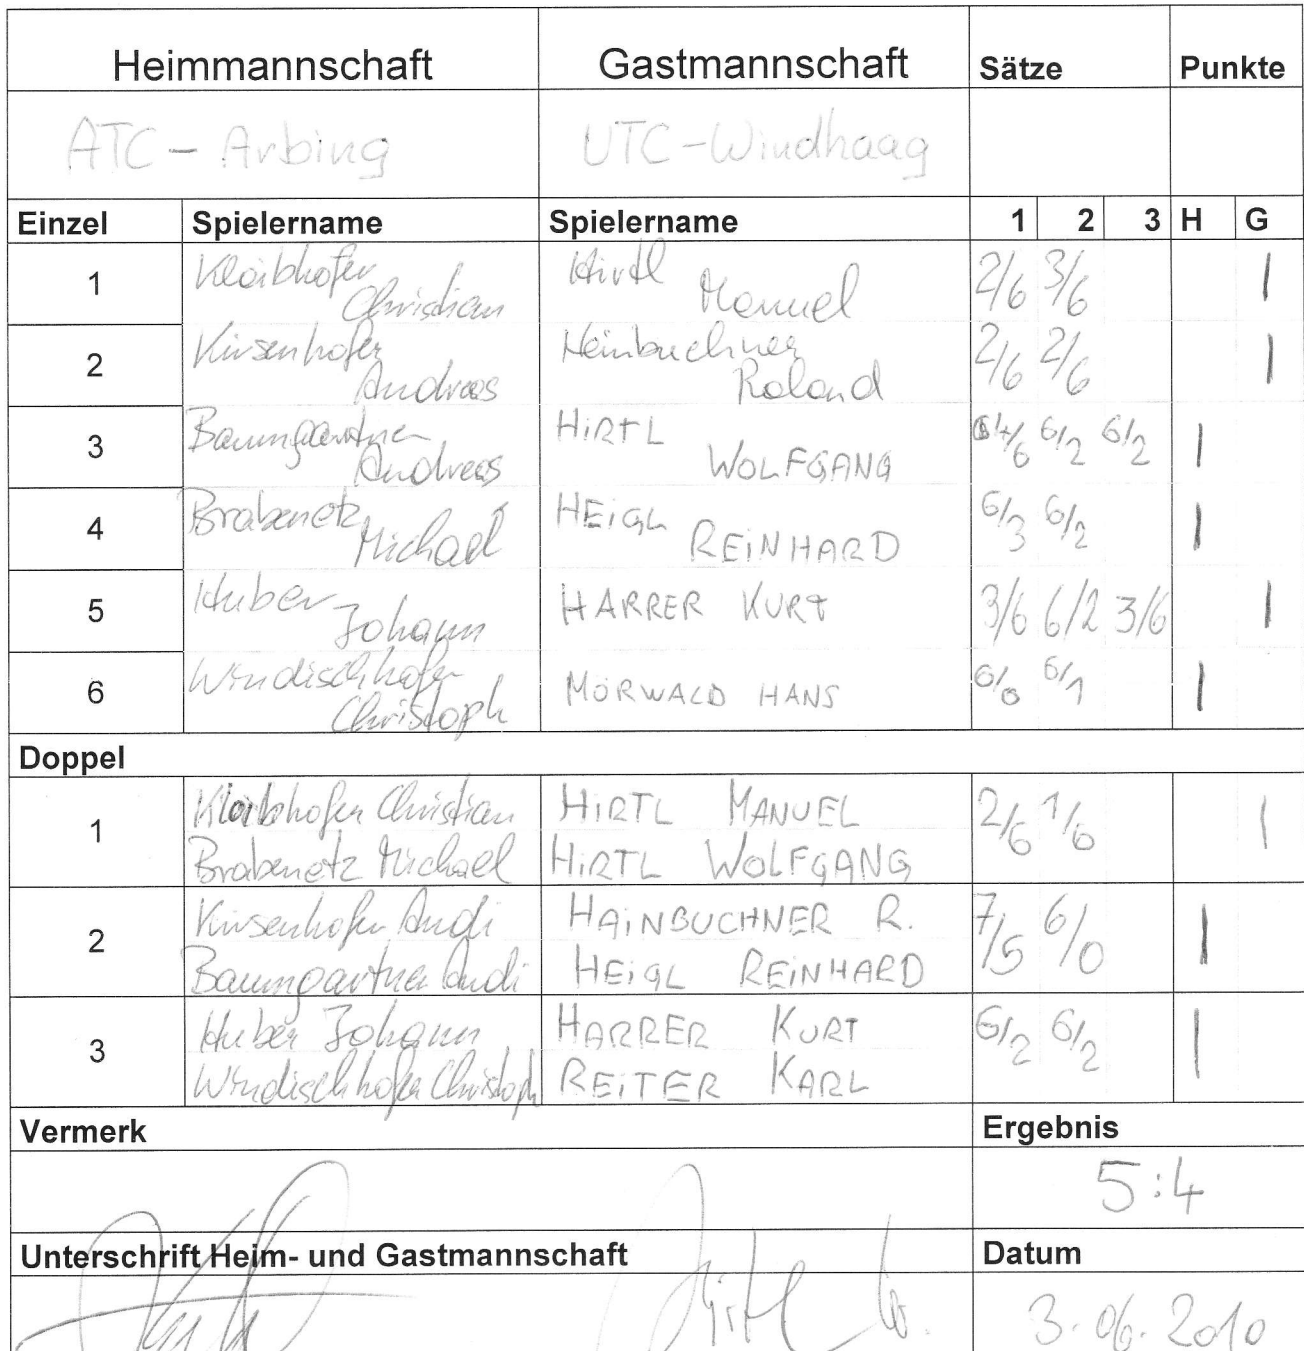 Heimmannschaft Gastmannschaft Sätze Punkte
ATC - Arbing UTC - Windhaag
Einzel Spielername Spielername 1 2 3 H G
1 Klaibhofer Christian Hirtl Manuel 2/6 3/6 |
2 Kirsenhofer Andreas Heinbuchner Roland 2/6 2/6 |
3 Baumgartner Andreas HIRTL WOLFGANG 4/6 6/2 6/2 |
4 Brabenetz Michael HEIGL REINHARD 6/3 6/2 |
5 Huber Johann HARRER KURT 3/6 6/2 3/6 |
6 Windischhofer Christoph MÖRWALD HANS 6/0 6/1 |
Doppel
1 Klaibhofer Christian HIRTL MANUEL 2/6 1/6 |
Brabenetz Michael HIRTL WOLFGANG
2 Kirsenhofer Andi HAINBUCHNER R. 7/5 6/0 |
Baumgartner Andi HEIGL REINHARD
3 Huber Johann HARRER KURT 6/2 6/2 |
Windischhofer Christoph REITER KARL
Vermerk Ergebnis
5:4
Unterschrift Heim- und Gastmannschaft Datum
3.06.2010